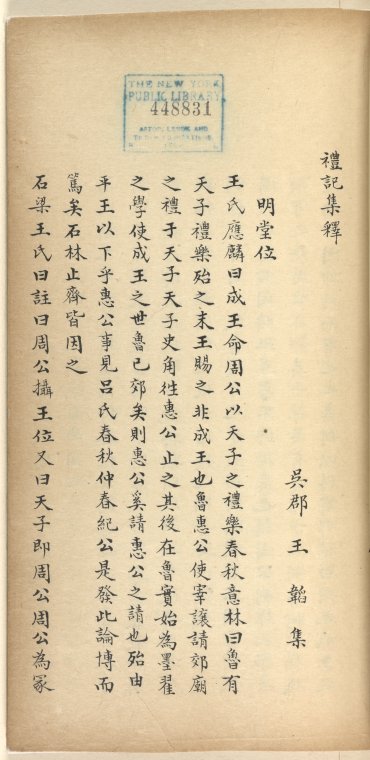 禮記集釋
吳郡 王韜集
明堂位
王氏應麟曰成王命周公以天子之禮樂春秋意林曰魯有
天子禮樂殆之末王賜之非成王也魯惠公使宰讓請郊廟
之禮于天子天子史角徃惠公止之其後在魯實始為墨翟
之學使成王之世魯已郊矣則惠公奚請惠公之請也殆由
平王以下乎惠公事見呂氏春秋仲春紀公是發此論博而
篤矣石林止齊皆因之
石梁王氏曰註曰周公攝王位又曰天子即周公周公為冢
THE NEW YORK
PUBLIC LIBRARY
448831
ASTOR, LENOX AND